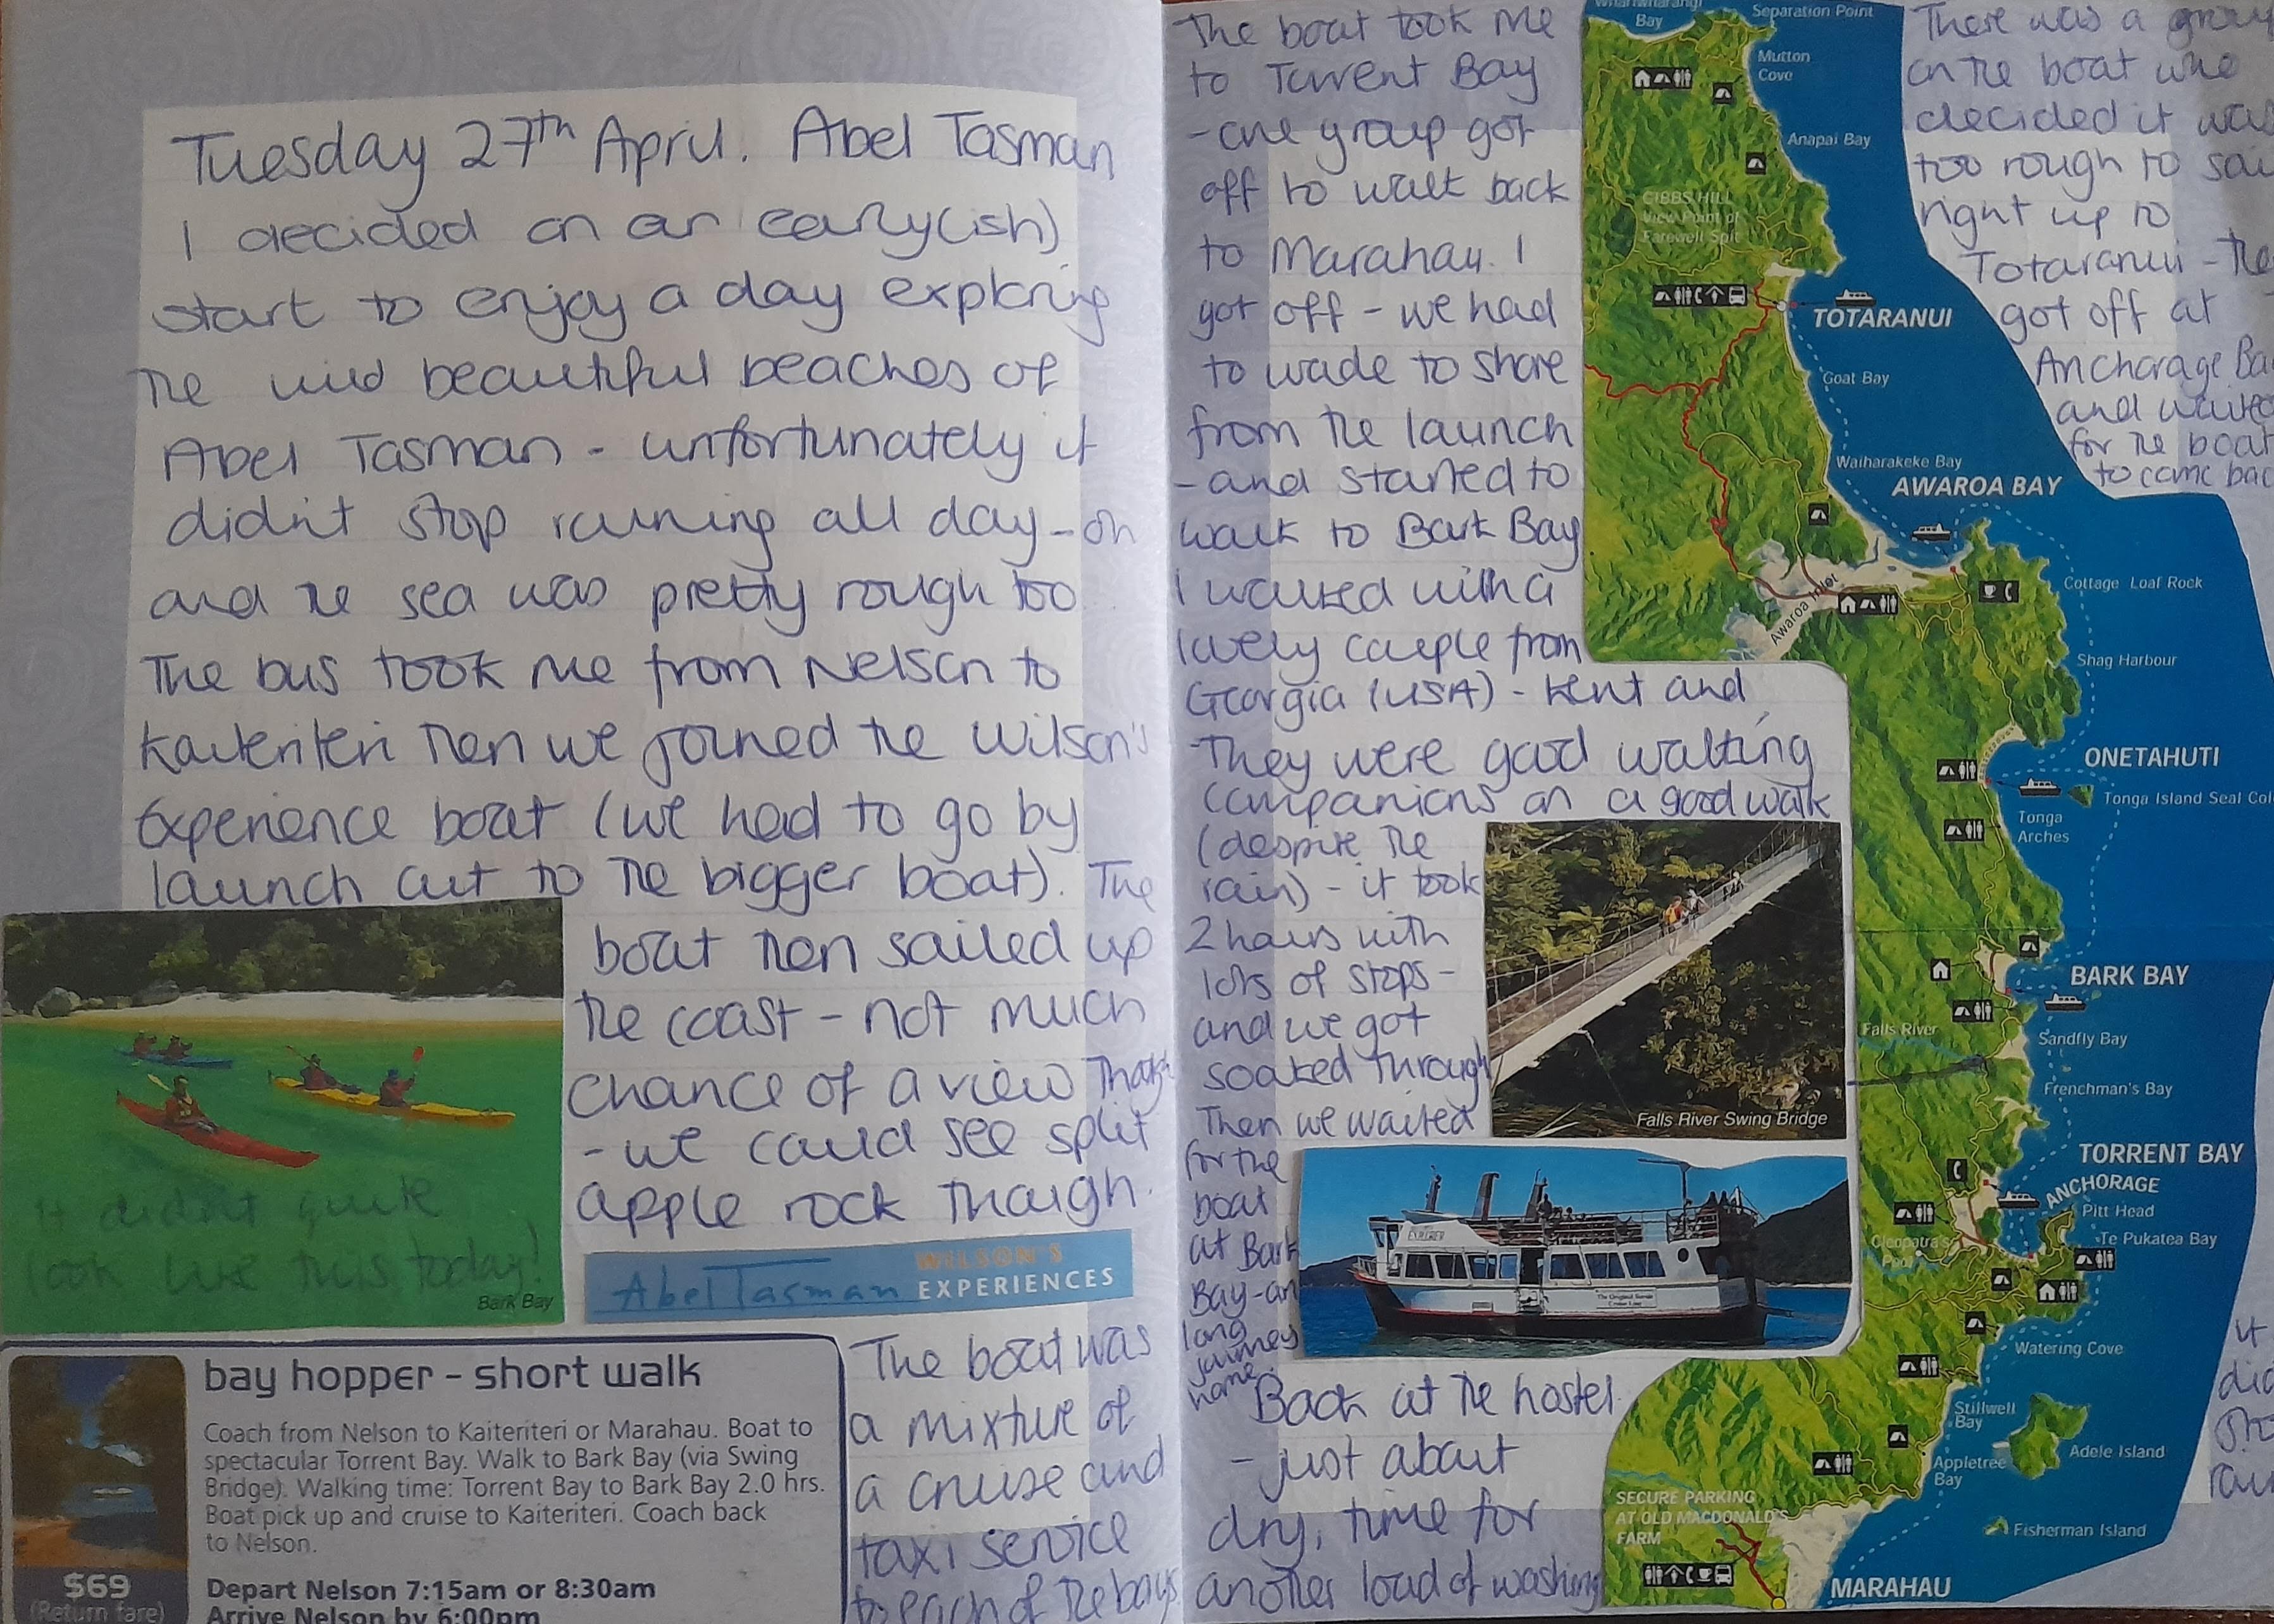 Tuesday 27th April. Abel Tasman
I decided on an early(ish)
start to enjoy a day exploring
the wild beautiful beaches of
Abel Tasman - unfortunately it
didn't stop raining all day - oh
and the sea was pretty rough too
The bus took me from Nelson to
Kaiteriteri then we joined the Wilson's
Experience boat (we had to go by
launch out to the bigger boat). The
boat then sailed up
the coast - not much
chance of a view though
- we could see split
apple rock though.
It didn't quite
look like this today!
Bark Bay
Abel Tasman WILSON'S
EXPERIENCES
bay hopper - short walk
Coach from Nelson to Kaiteriteri or Marahau. Boat to
spectacular Torrent Bay. Walk to Bark Bay (via Swing
Bridge). Walking time: Torrent Bay to Bark Bay 2.0 hrs.
Boat pick up and cruise to Kaiteriteri. Coach back
to Nelson.
$69
(Return fare)
Depart Nelson 7:15am or 8:30am
Arrive Nelson by 6:00pm
The boat was
a mixture of
a cruise and
taxi service
to each of the bays
The boat took me
to Torrent Bay
- one group got
off to walk back
to Marahau. I
got off - we had
to wade to shore
from the launch
- and started to
walk to Bark Bay
I walked with a
lovely couple from
Georgia (USA) - Kent and
They were good walking
companions on a good walk
(despite the
rain) - it took
2 hours with
lots of stops -
and we got
soaked through
Then we waited
for the
boat
at Bark
Bay - an
long
journey
home.
Back at the hostel
- just about
dry, time for
another load of washing
Falls River Swing Bridge
EXPLORER
There was a group
on the boat who
decided it was
too rough to sail
right up to
Totaranui - the
got off at
Anchorage Ba
and waited
for the boat
to come bac
it
did
rain
Wharwharangi
Bay
Separation Point
Mutton
Cove
Anapai Bay
GIBBS HILL
View Point of
Farewell Spit
TOTARANUI
Goat Bay
Waiharakeke Bay
AWAROA BAY
Awaroa Inlet
Cottage Loaf Rock
Shag Harbour
ONETAHUTI
Tonga Island Seal Col
Tonga
Arches
BARK BAY
Falls River
Sandfly Bay
Frenchman's Bay
TORRENT BAY
ANCHORAGE
Pitt Head
Te Pukatea Bay
Cleopatra's
Pool
Watering Cove
Stillwell
Bay
Adele Island
Appletree
Bay
SECURE PARKING
AT OLD MACDONALD'S
FARM
Fisherman Island
MARAHAU